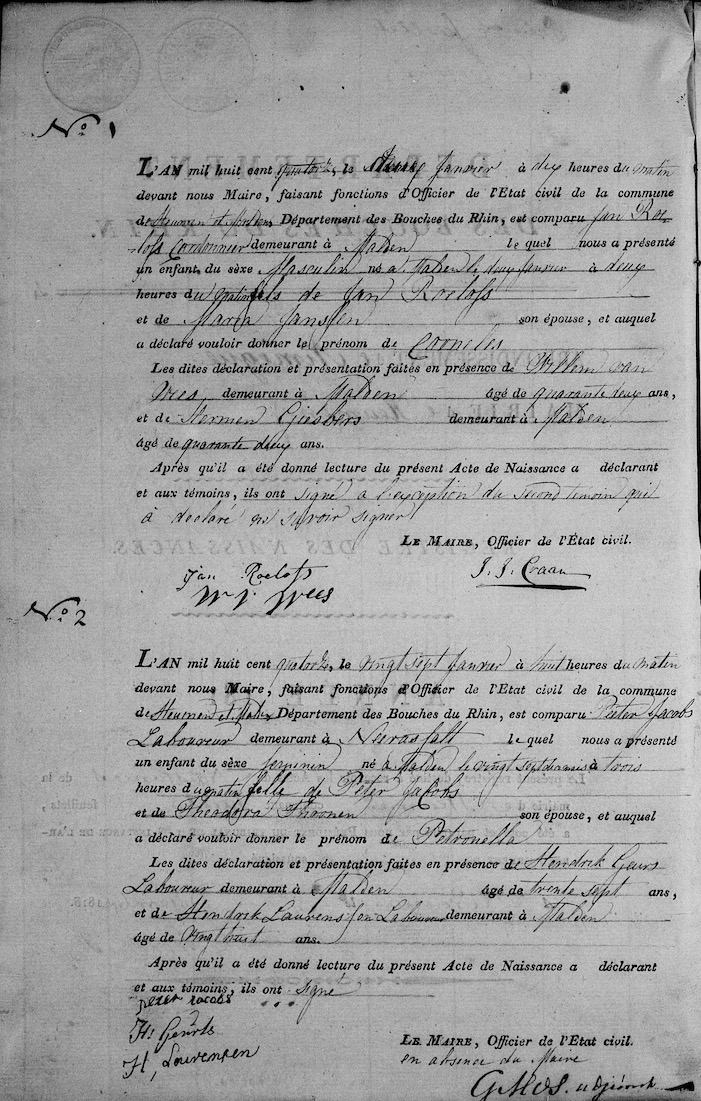 N.º 1
L'AN mil huit cent quatorze, le deux Janvier à dix heures du matin
devant nous Maire, faisant fonctions d'Officier de l'Etat civil de la commune
de Heumen et Malden Département des Bouches du Rhin, est comparu Jan Roe-
lofs Cordonnier demeurant à Malden le quel nous a présenté
un enfant du sèxe Masculin né à Malden le deux Janvier à deux
heures du matin fils de Jan Roelofs
et de Maria Janssen son épouse, et auquel
a déclaré vouloir donner le prénom de Corneles
Les dites déclaration et présentation faites en présence de Willem van
Wees, demeurant à Malden âgé de quarante deux ans,
et de Hermen Giesbers demeurant à Malden
âgé de quarante deux ans.
Après qu'il a été donné lecture du présent Acte de Naissance a déclarant
et aux témoins, ils ont signé a l'exception du second temoin qui
à declaré ne savoir signer
LE MAIRE, Officier de l'État civil.
Jan Roelofs J. J. Craan
W v. Wees
N.º 2
L'AN mil huit cent quatorze, le vingt sept Janvier à huit heures du matin
devant nous Maire, faisant fonctions d'Officier de l'Etat civil de la commune
de Heumen et Malden Département des Bouches du Rhin, est comparu Peter Jacobs
Laboureur demeurant à le quel nous a présenté
un enfant du sèxe feminin né à Malden le vingt sept à trois
heures du matin fille de Peter Jacobs
et de Theodora Thoonen son épouse, et auquel
a déclaré vouloir donner le prénom de Petronella
Les dites déclaration et présentation faites en présence de Hendrik Geurs
Laboureur demeurant à Malden âgé de trente sept ans,
et de Hendrik Laurenssen Laboureur demeurant à Malden
âgé de vingt huit ans.
Après qu'il a été donné lecture du présent Acte de Naissance a déclarant
et aux témoins, ils ont signé
peter iacobs
H: Geurts
LE MAIRE, Officier de l'État civil.
H, Lourensen
en absence du Maire